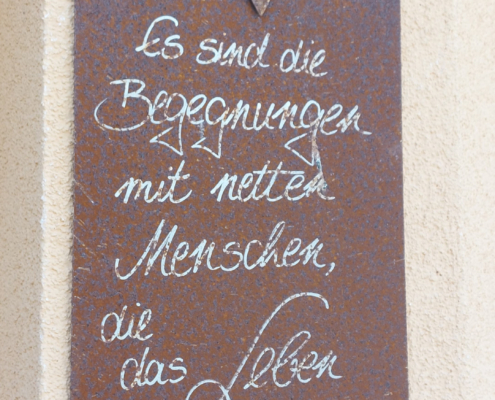 Es sind die
Begegnungen
mit netten
Menschen,
die
das Leben